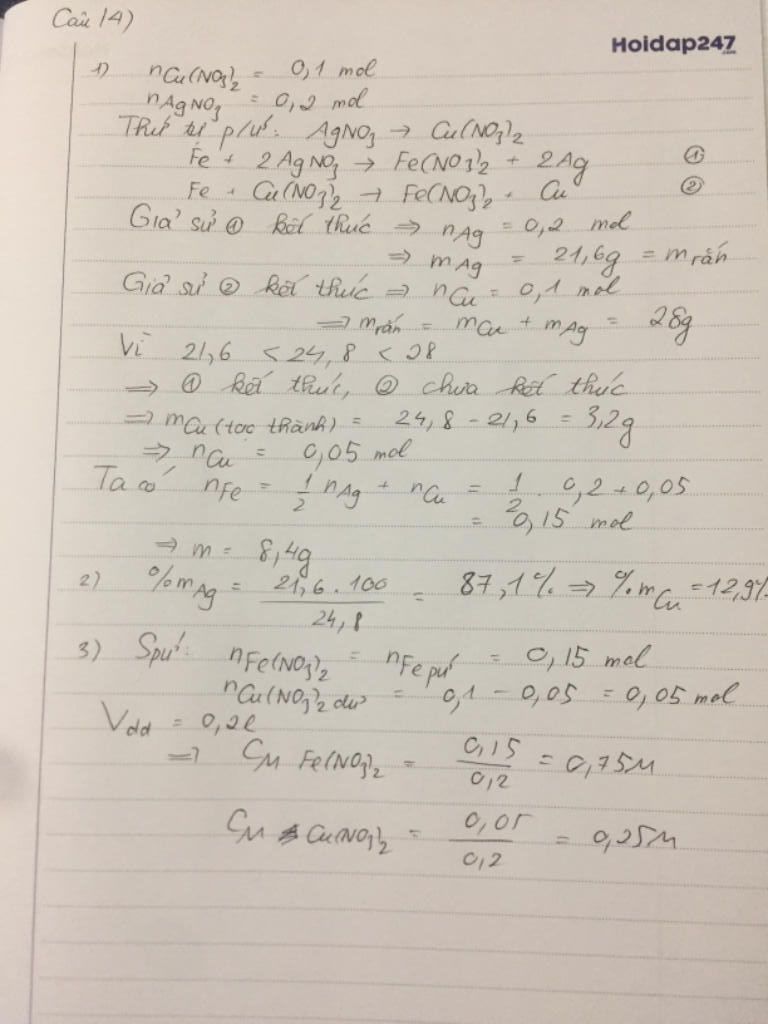 Câu 14)
Hoidap247.com
1) nCu(NO3)2 = 0,1 mol
nAgNO3 = 0,2 mol
Thứ tự p/ứ: AgNO3 → Cu(NO3)2
Fe + 2AgNO3 → Fe(NO3)2 + 2Ag ①
Fe + Cu(NO3)2 → Fe(NO3)2 + Cu ②
Giả sử ① kết thúc => nAg = 0,2 mol
=> mAg = 21,6g = mrắn
Giả sử ② kết thúc => nCu = 0,1 mol
=> mrắn = mCu + mAg = 28g
Vì 21,6 < 24,8 < 28
=> ① kết thúc, ② chưa kết thúc
=> mCu (tạo thành) = 24,8 - 21,6 = 3,2g
=> nCu = 0,05 mol
Ta có nFe = 1/2 nAg + nCu = 1/2 . 0,2 + 0,05
= 0,15 mol
=> m = 8,4g
2) %mAg = 21,6.100/24,8 = 87,1% => %mCu = 12,9%
3) Spứ: nFe(NO3)2 = nFe pứ = 0,15 mol
nCu(NO3)2 dư = 0,1 - 0,05 = 0,05 mol
Vdd = 0,2l
=> CM Fe(NO3)2 = 0,15/0,2 = 0,75M
CM Cu(NO3)2 = 0,05/0,2 = 0,25M